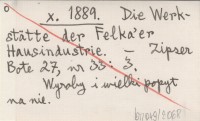 x. 1889. Die Werk-
stätte der Felkaer
Hausindustrie. – Zipser
Bote 27, nr 33: 3.
Wyroby i wielki popyt
na nie.